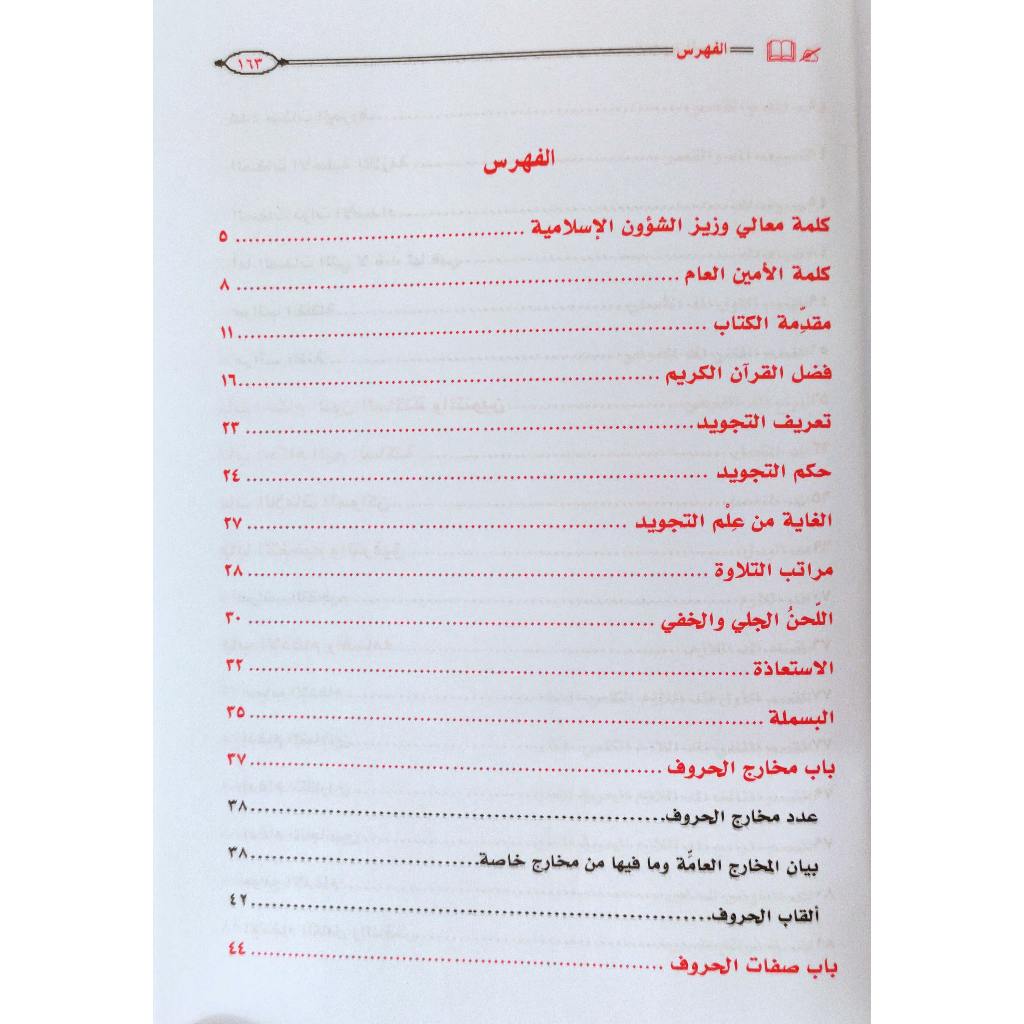 الفهرس ١٦٣
الفهرس
كلمة معالي وزيز الشؤون الإسلامية ............................................. ٥
كلمة الأمين العام ............................................. ٨
مقدِّمة الكتاب ............................................. ١١
فضل القرآن الكريم ............................................. ١٦
تعريف التجويد ............................................. ٢٣
حكم التجويد ............................................. ٢٤
الغاية من عِلْم التجويد ............................................. ٢٧
مراتب التلاوة ............................................. ٢٨
اللّحنُ الجلي والخفي ............................................. ٣٠
الاستعاذة ............................................. ٣٢
البسملة ............................................. ٣٥
باب مخارج الحروف ............................................. ٣٧
عدد مخارج الحروف ............................................. ٣٨
بيان المخارج العامَّة وما فيها من مخارج خاصة ............................................. ٣٨
ألقاب الحروف ............................................. ٤٢
باب صفات الحروف ............................................. ٤٤